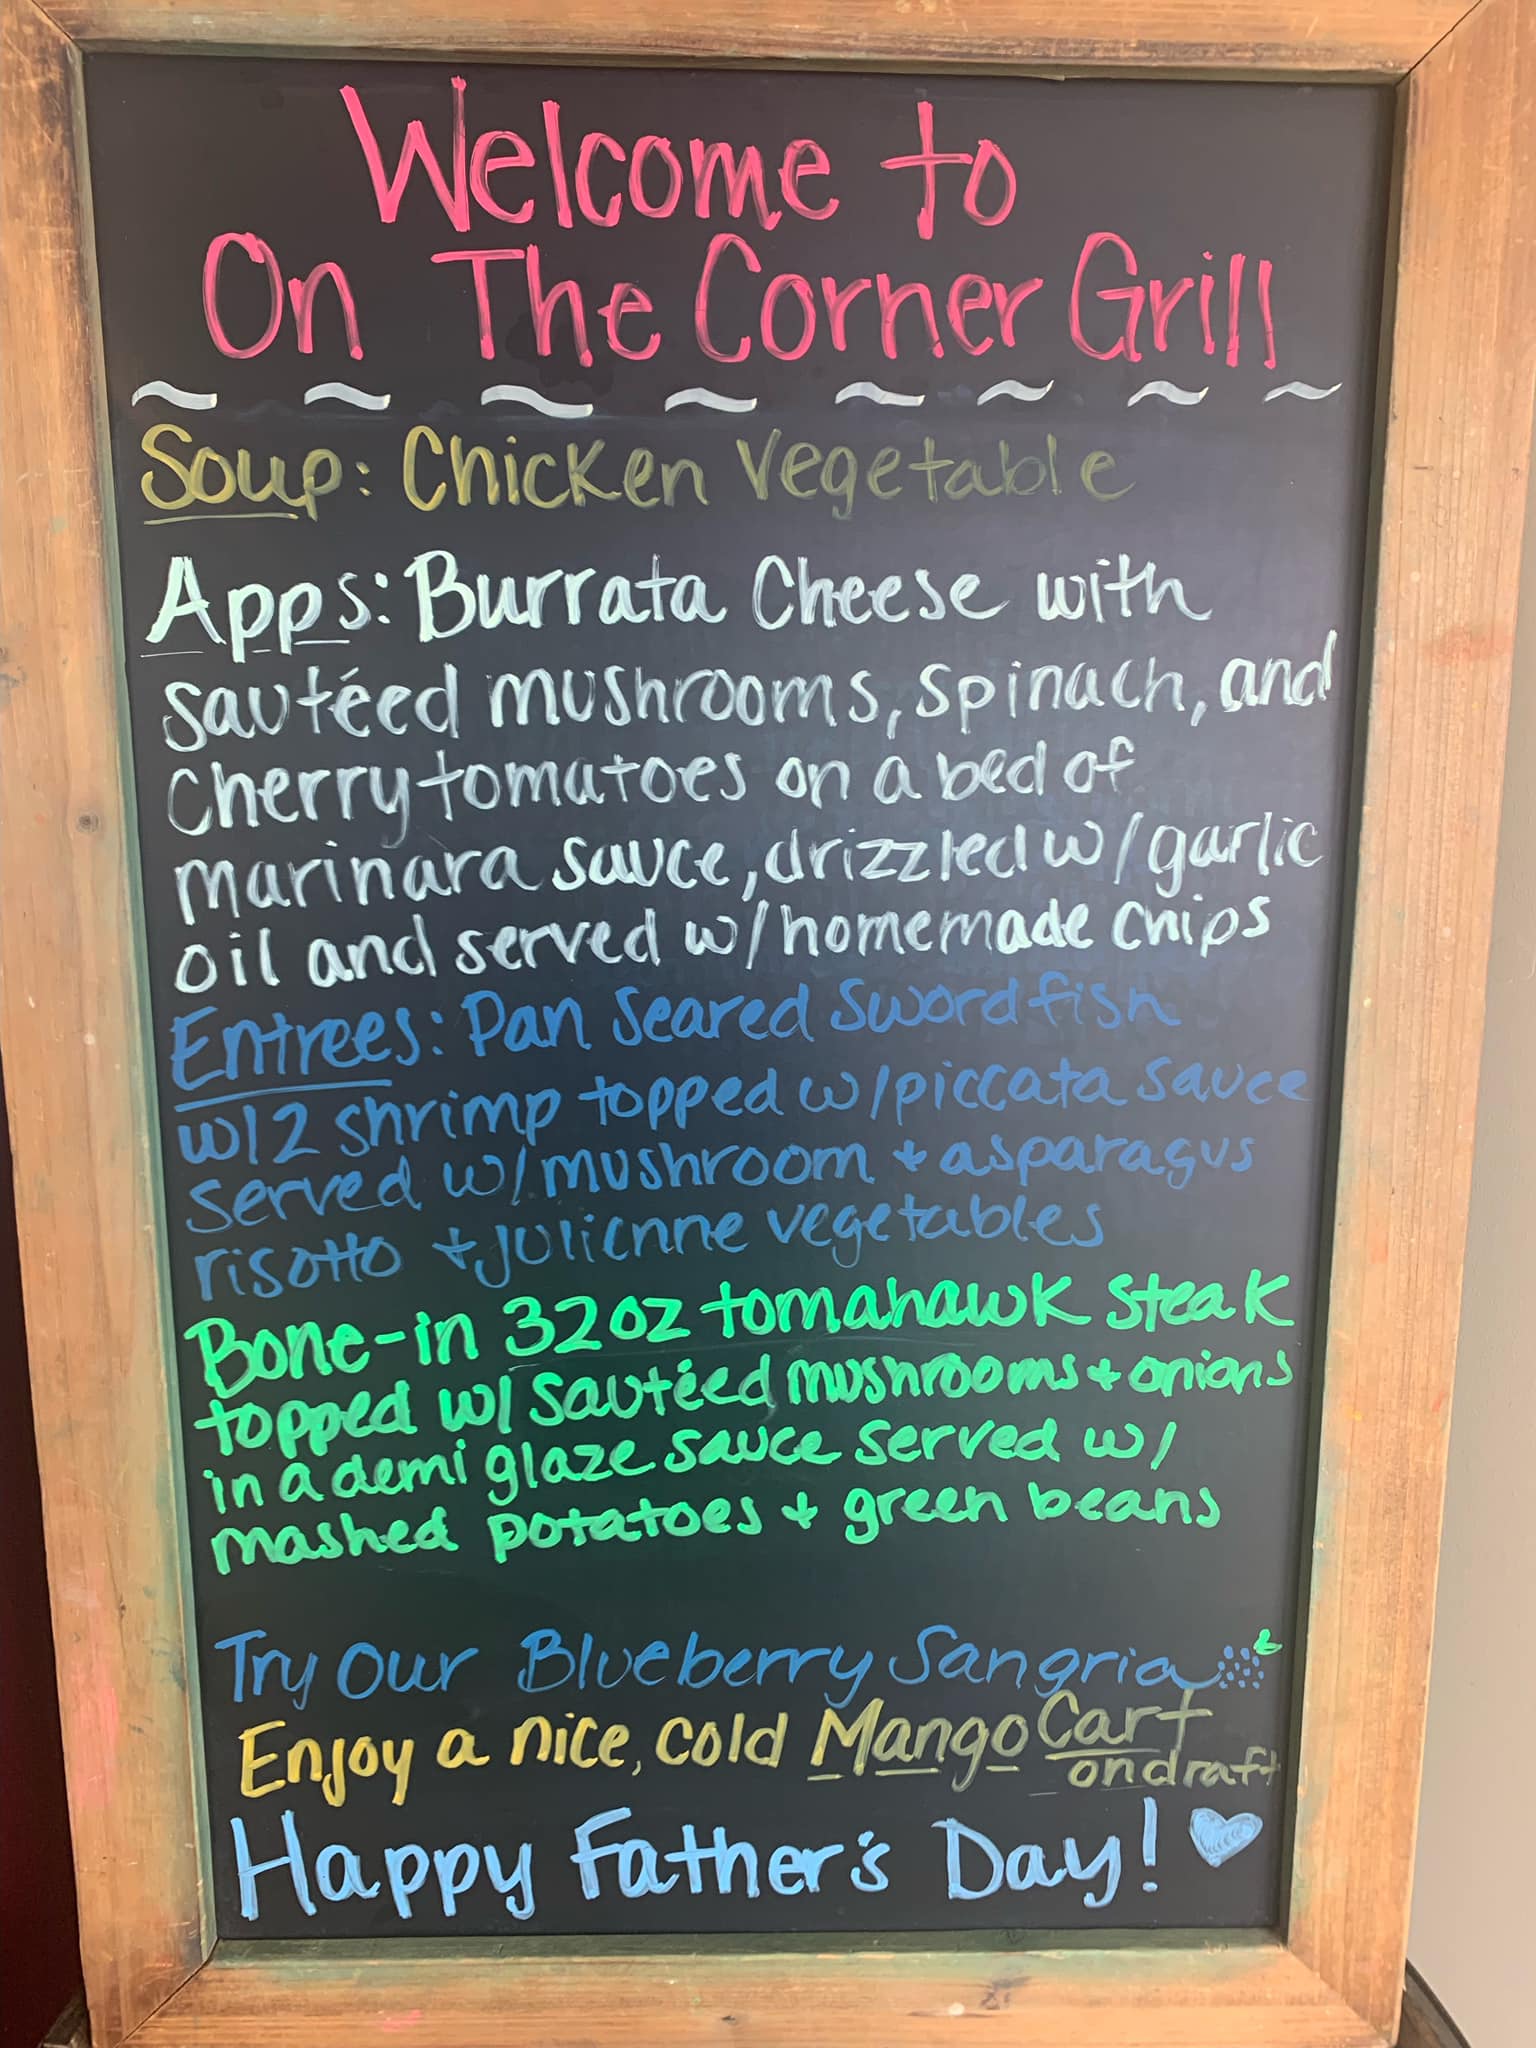 Welcome to
On The Corner Grill
Soup: Chicken Vegetable
Apps: Burrata Cheese with
sautéed mushrooms, spinach, and
Cherry tomatoes on a bed of
marinara sauce, drizzled w/ garlic
oil and served w/ homemade chips
Entrees: Pan Seared Swordfish
w/ 2 shrimp topped w/ piccata sauce
served w/ mushroom + asparagus
risotto + julienne vegetables
Bone-in 32oz tomahawk steak
topped w/ sautéed mushrooms + onions
in a demi glaze sauce served w/
mashed potatoes + green beans
Try Our Blueberry Sangria
Enjoy a nice, cold Mango Cart
on draft
Happy Father's Day!